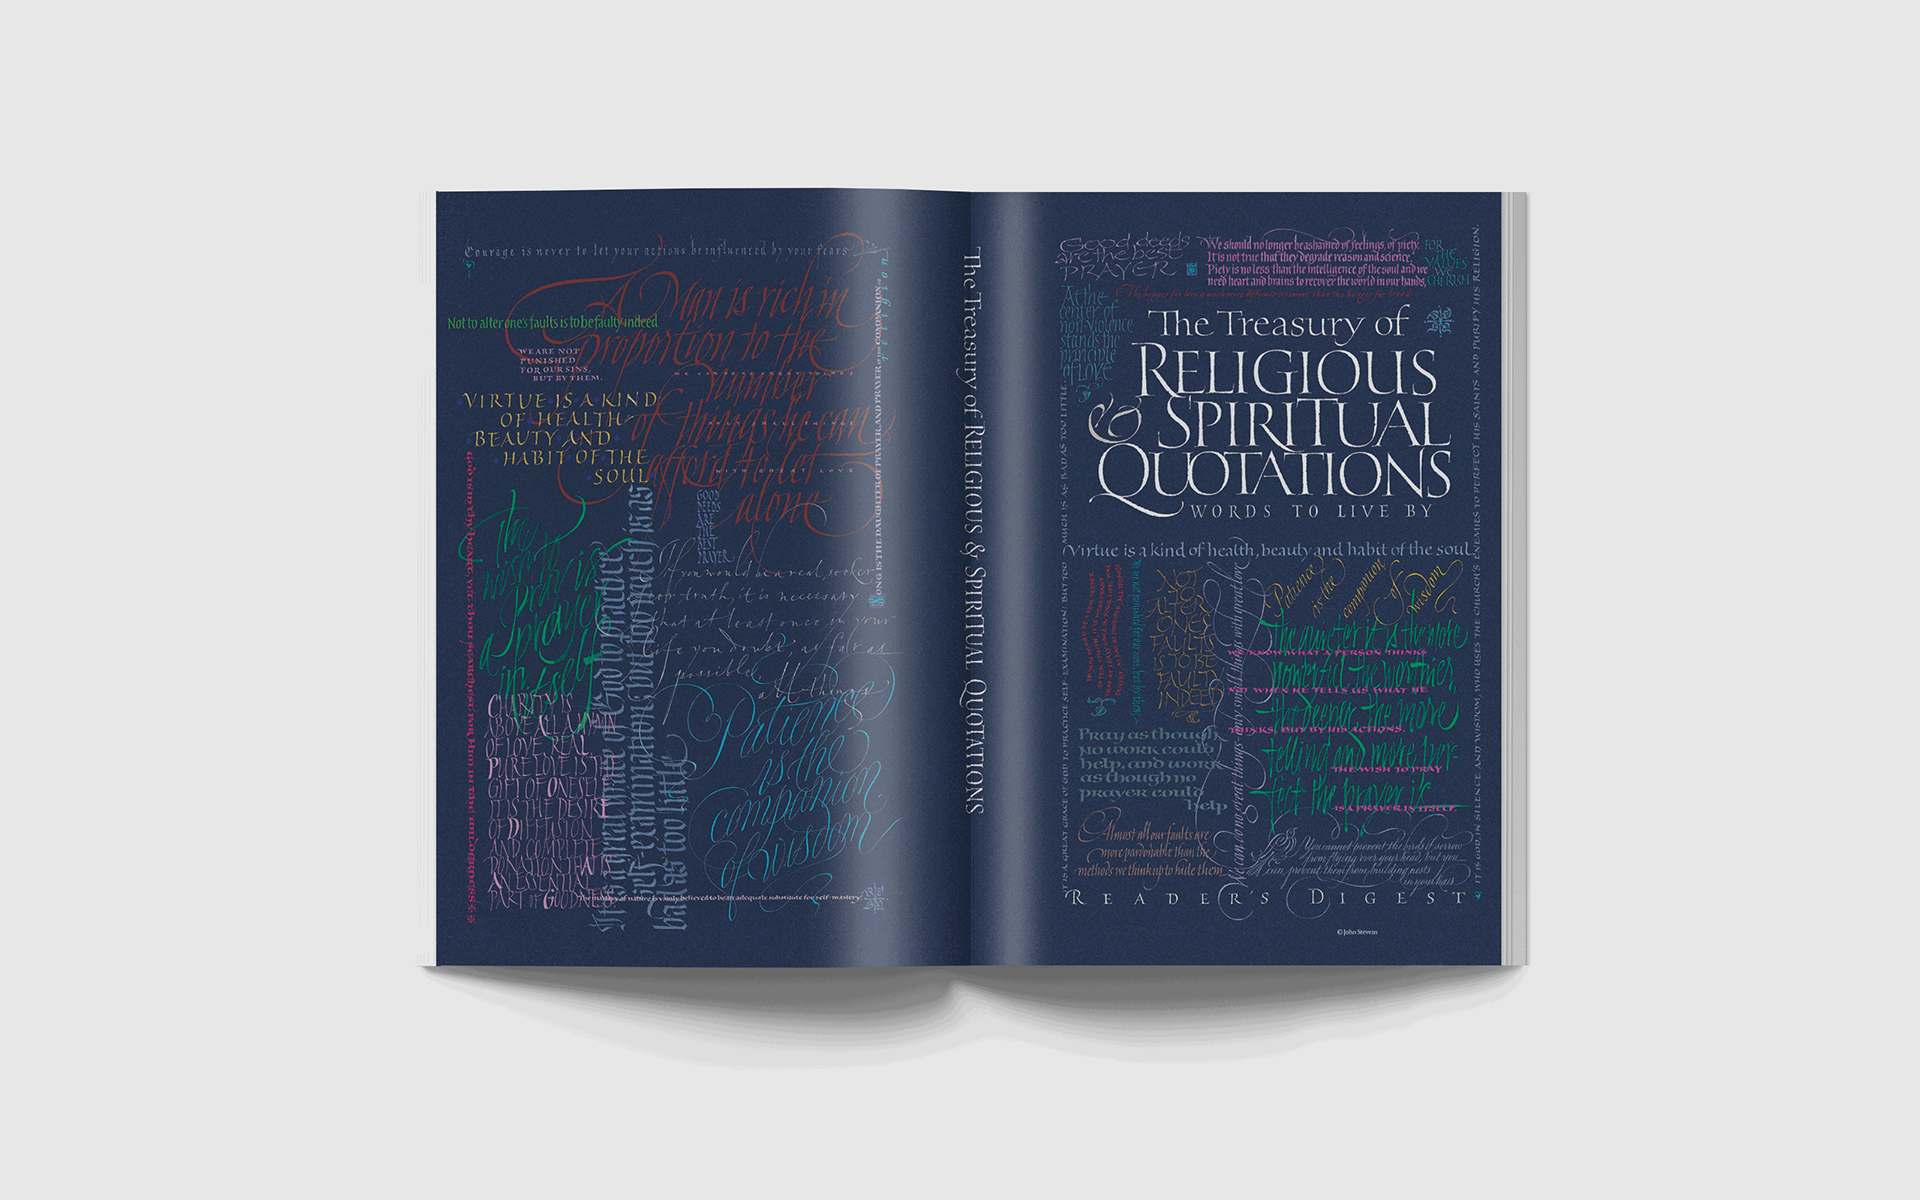 Courage is never to let your actions be influenced by your fears
A Man is rich in
proportion to the
number
of things he can
afford to let
alone
Not to alter one's faults is to be faulty indeed
WE ARE NOT
PUNISHED
FOR OUR SINS,
BUT BY THEM.
WE CAN DO NO GREAT THINGS
ONLY SMALL THINGS
WITH GREAT LOVE
VIRTUE IS A KIND
OF HEALTH
BEAUTY AND
HABIT OF THE
SOUL
SONG IS THE DAUGHTER OF PRAYER, AND PRAYER IS THE COMPANION OF
religion
GOOD
DEEDS
ARE
THE
BEST
PRAYER
the
wish to
pray is
a prayer
in itself
It is a great grace of God to practice
self-examination: but too much is as
bad as too little
If you would be a real seeker
after truth, it is necessary
that at least once in your
life you doubt, as far as
possible,
all things
CHARITY IS
ABOVE ALL A HYMN
OF LOVE. REAL,
PURE LOVE IS THE
GIFT OF ONESELF
IT IS THE DESIRE
OF DIFFUSION
AND COMPLETE
DONATION THAT IS
AN ESSENTIAL
PART OF GOODNESS.
Patience
is the
companion
of wisdom
The mastery of nature is vainly believed to be an adequate substitute for self-mastery.
The Treasury of RELIGIOUS & SPIRITUAL QUOTATIONS
Good deeds
are the best
PRAYER
We should no longer be ashamed of feelings of piety.
It is not true that they degrade reason and science.
Piety is no less than the intelligence of the soul and we
need heart and brains to recover the world in our hands,
FOR
THE
VALUES
WE
CHERISH
The hunger for love is much more difficult to remove than the hunger for bread.
At the
center of
non-violence
stands the
principle
of LOVE
The Treasury of
RELIGIOUS
& SPIRITUAL
QUOTATIONS
WORDS TO LIVE BY
Virtue is a kind of health, beauty and habit of the soul
IT IS A GREAT GRACE OF GOD TO PRACTICE SELF-EXAMINATION: BUT TOO MUCH IS AS BAD AS TOO LITTLE.
IT IS GOD, IN SILENCE AND WISDOM, WHO USES THE CHURCH'S ENEMIES TO PERFECT HIS SAINTS AND PURIFY HIS RELIGION.
IF YOU WOULD BE A REAL SEEKER
AFTER TRUTH, IT IS NECESSARY
THAT AT LEAST ONCE IN YOUR LIFE YOU
DOUBT, AS FAR AS POSSIBLE, ALL THINGS
We are not punished for our sins, but by them
NOT
TO
ALTER
ONE'S
FAULTS
IS TO BE
FAULTY
INDEED
We can do no great things, only small things with great love
Patience
is the
companion
of
wisdom
The quieter it is the more
powerful, the worthier,
the deeper, the more
telling and more per-
fect the prayer is
WE KNOW WHAT A PERSON THINKS
NOT WHEN HE TELLS US WHAT HE
THINKS, BUT BY HIS ACTIONS
THE WISH TO PRAY
IS A PRAYER IN ITSELF.
Pray as though
no work could
help, and work
as though no
prayer could
help
Almost all our faults are
more pardonable than the
methods we think up to hide them
You cannot prevent the birds of sorrow
from flying over your head, but you
can prevent them from building nests
in your hair
READER'S DIGEST
© John Stevens